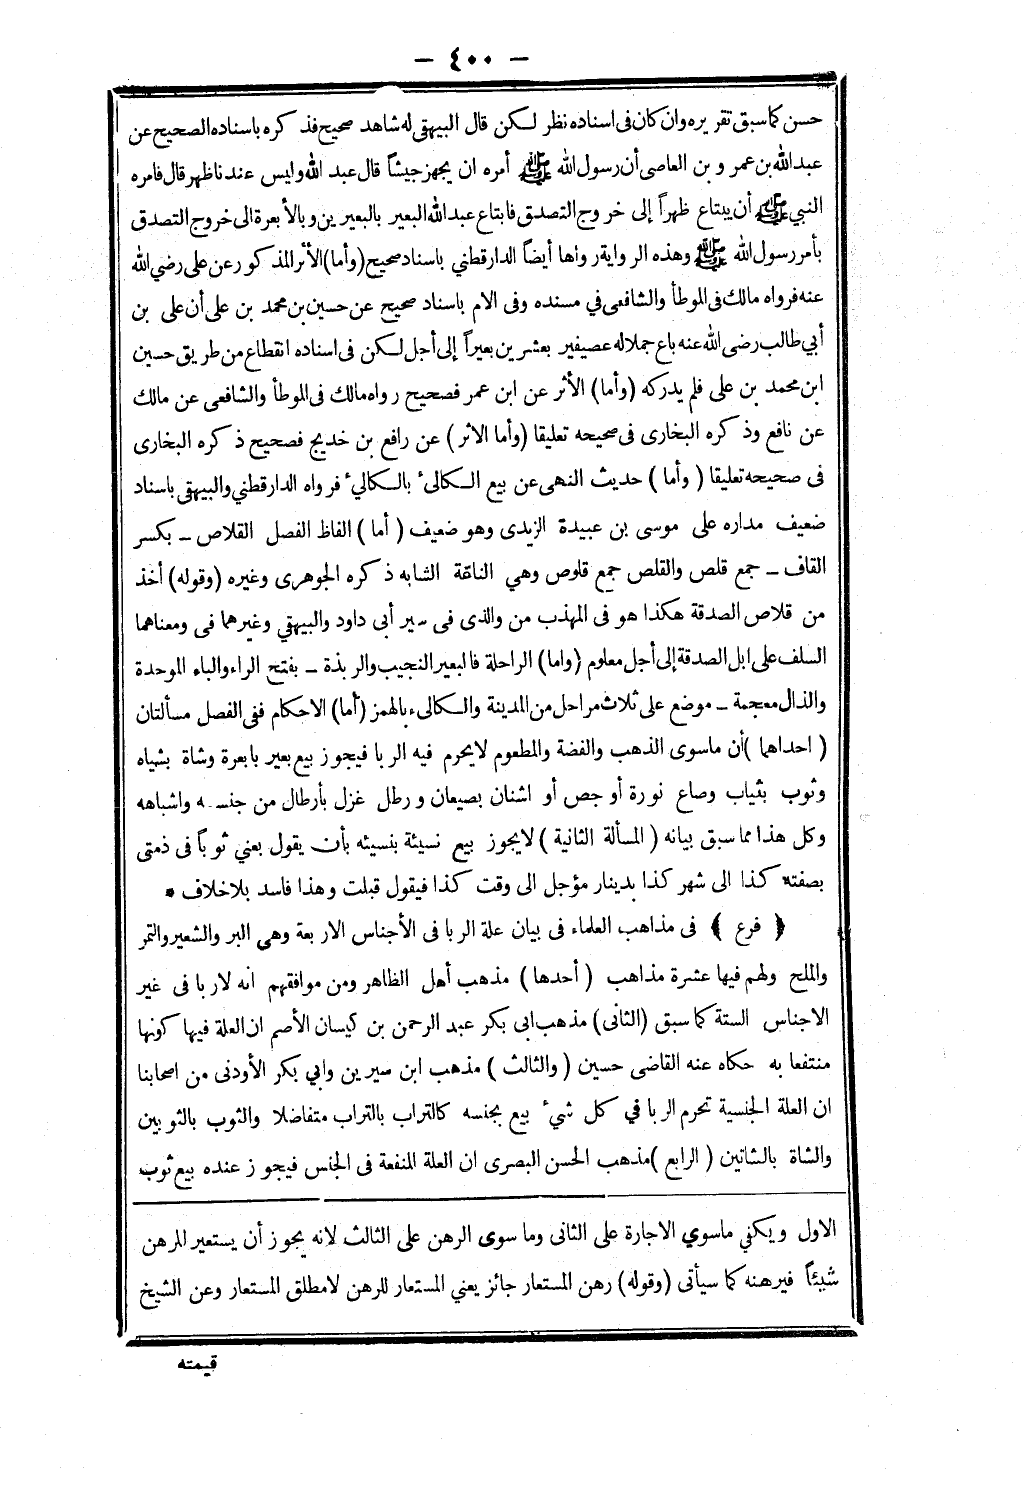 — ٤٠٠ —
حسن كما سبق تقريره وان كان فى اسناده نظر لكن قال البيهقى له شاهد صحيح فذكره باسناده الصحيح عن
عبد الله بن عمرو بن العاصى أن رسول الله ﷺ أمره ان يجهز جيشاً قال عبد الله وليس عندنا ظهر قال فامره
النبي ﷺ أن يبتاع ظهراً إلى خروج التصدق فابتاع عبد الله البعير بالبعيرين وبالأبعرة الى خروج التصدق
بأمر رسول الله ﷺ وهذه الرواية رواها أيضاً الدارقطني باسناد صحيح (وأما) الأثر المذكور عن على رضي الله
عنه فرواه مالك فى الموطأ والشافعى في مسنده وفى الام باسناد صحيح عن حسين بن محمد بن على أن على بن
أبي طالب رضى الله عنه باع جملا له عصيفير بعشرين بعيراً إلى أجل لكن فى اسناده انقطاع من طريق حسين
ابن محمد بن على فلم يدركه (وأما) الأثر عن ابن عمر فصحيح رواه مالك فى الموطأ والشافعى عن مالك
عن نافع وذكره البخارى فى صحيحه تعليقا (وأما الاثر) عن رافع بن خديج فصحيح ذكره البخارى
فى صحيحه تعليقا (وأما) حديث النهى عن بيع الكالىء بالكاليء فرواه الدارقطني والبيهقى باسناد
ضعيف مداره على موسى بن عبيدة الزيدى وهو ضعيف (أما) الفاظ الفصل القلاص ـ بكسر
القاف ـ جمع قلص والقلص جمع قلوص وهي الناقة الشابه ذكره الجوهرى وغيره (وقوله) أخذ
من قلاص الصدقة هكذا هو فى المهذب من والذى فى سير أبى داود والبيهقي وغيرهما فى ومعناهما
السلف على ابل الصدقة إلى أجل معلوم (واما) الراحلة فالبعير النجيب والربذة ـ بفتح الراء والباء الموحدة
والذال معجمة ـ موضع على ثلاث مراحل من المدينة والكالىء بالهمز (أما) الاحكام ففى الفصل مسألتان
(احداهما) أن ماسوى الذهب والفضة والمطعوم لايحرم فيه الربا فيجوز بيع بعير بابعرة وشاة بشياه
وثوب بثياب وصاع نورة أو جص أو اشنان بصيعان ورطل غزل بأرطال من جنسه واشباهه
وكل هذا مما سبق بيانه (المسألة الثانية) لايجوز بيع نسيئة بنسيئه بأن يقول بعني ثوباً فى ذمتى
بصفته كذا الى شهر كذا بدينار مؤجل الى وقت كذا فيقول قبلت وهذا فاسد بلا خلاف *
﴿ فرع ﴾ فى مذاهب العلماء فى بيان علة الربا فى الأجناس الاربعة وهي البر والشعير والتمر
والملح ولهم فيها عشرة مذاهب (أحدها) مذهب أهل الظاهر ومن موافقهم انه لاربا فى غير
الاجناس الستة كما سبق (الثانى) مذهب ابى بكر عبد الرحمن بن كيسان الأصم ان العلة فيها كونها
منتفعا به حكاه عنه القاضى حسين (والثالث) مذهب ابن سيرين وابي بكر الأودنى من اصحابنا
ان العلة الجنسية تحرم الربا في كل شيء بيع بجنسه كالتراب بالتراب متفاضلا والثوب بالثوبين
والشاة بالشاتين (الرابع) مذهب الحسن البصرى ان العلة المنفعة فى الجنس فيجوز عنده بيع ثوب
الاول ويكفي ماسوي الاجارة على الثانى وما سوى الرهن على الثالث لانه يجوز أن يستعير المرهن
شيئاً فيرهنه كما سيأتى (وقوله) رهن المستعار جائز يعني المستعار للرهن لامطلق المستعار وعن الشيخ
قيمته